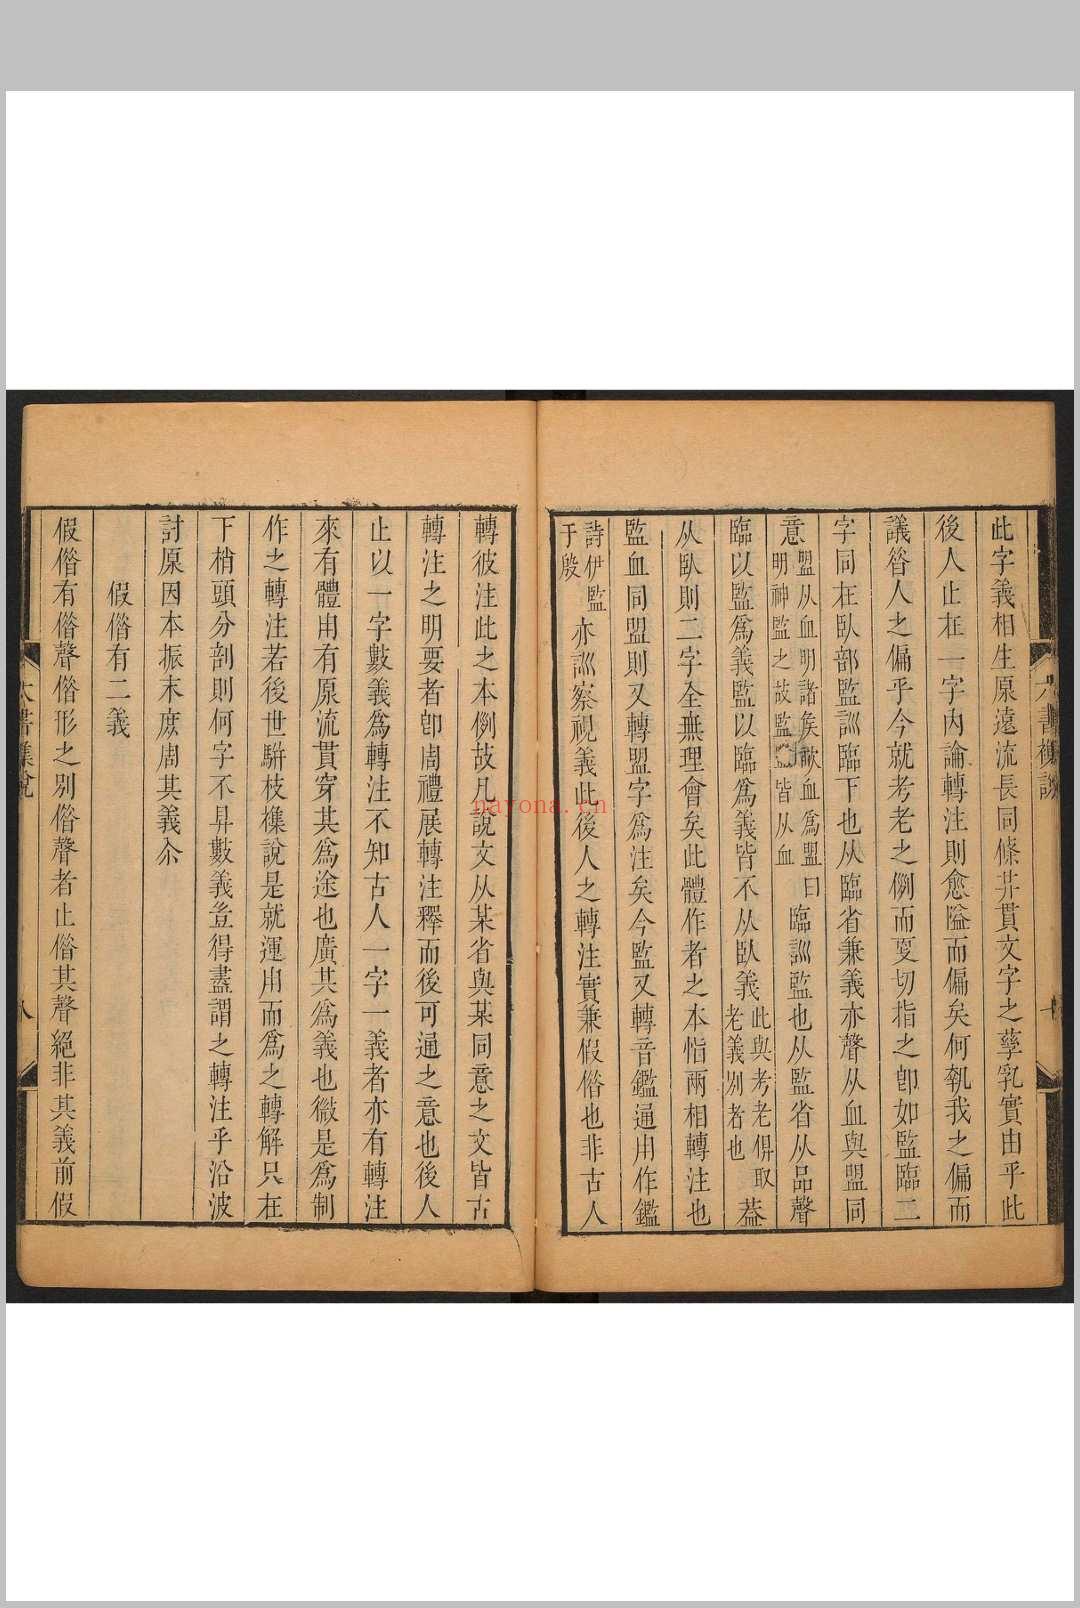 此字義相生原遠流長同條共貫文字之孳乳實由乎此
後人止在一字內論轉注則愈隘而偏矣何執我之偏而
議昝人之偏乎今就考老之例而更切指之卽如監臨二
字同在臥部監訓臨下也从臨省兼義亦聲从血與盟同
意盟从血明諸矦歃血爲盟曰明神監之故監盟皆从血臨訓監也从監省从品聲
臨以監爲義監以臨爲義皆不从臥義此與考老俱取老義別者也葢
从臥則二字全無理會矣此體作者之本恉兩相轉注也
監血同盟則又轉盟字爲注矣今監又轉音鑑通用作鑑
詩伊監于殷亦訓察視義此後人之轉注實兼假俗也非古人
轉彼注此之本例故凡說文从某省與某同意之文皆古
轉注之明要者卽周禮展轉注釋而後可通之意也後人
止以一字數義爲轉注不知古人一字一義者亦有轉注
來有體用有原流貫穿其爲途也廣其爲義也微是爲制
作之轉注若後世騈枝襍說是就運用而爲之轉解只在
下梢頭分剖則何字不昇數義豈得盡謂之轉注乎沿波
討原因本振末庶周其義尒
假偺有二義
假偺有偺聲偺形之別偺聲者止偺其聲絕非其義前假
六書襍說
八